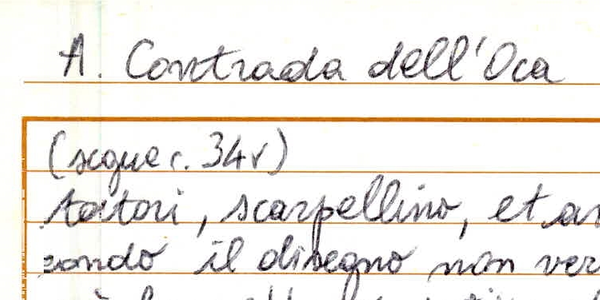 A. Contrada dell'Oca
(segue c. 34v)
tatori, scarpellino, et
zando il disegno non